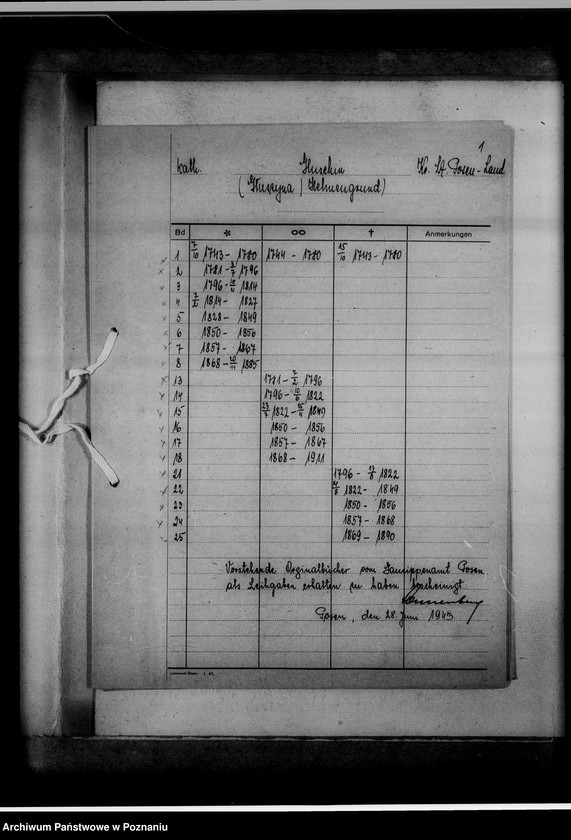 1
kath. Gluschin Kr. St. Posen-Land
(Głuszyna / Helmengrund)
Bd * ∞ † Anmerkungen
1 7/10 1743 - 1780 1744 - 1780 15/10 1743 - 1780
2 1781 - 1796
3 1796 - 1814
4 1814 - 1827
5 1828 - 1849
6 1850 - 1856
7 1857 - 1867
8 1868 - 1885
13 1781 - 1796
14 1796 - 1822
15 1822 - 1849
16 1850 - 1856
17 1857 - 1867
18 1868 - 1911
21 1796 - 1822
22 1822 - 1849
23 1850 - 1856
24 1857 - 1868
25 1869 - 1890
Vorstehende Orginalbücher vom Gausippenamt Posen
als Leihgaben erhalten zu haben bescheinigt
Posen, den 28. Juni 1943
Archiwum Państwowe w Poznaniu